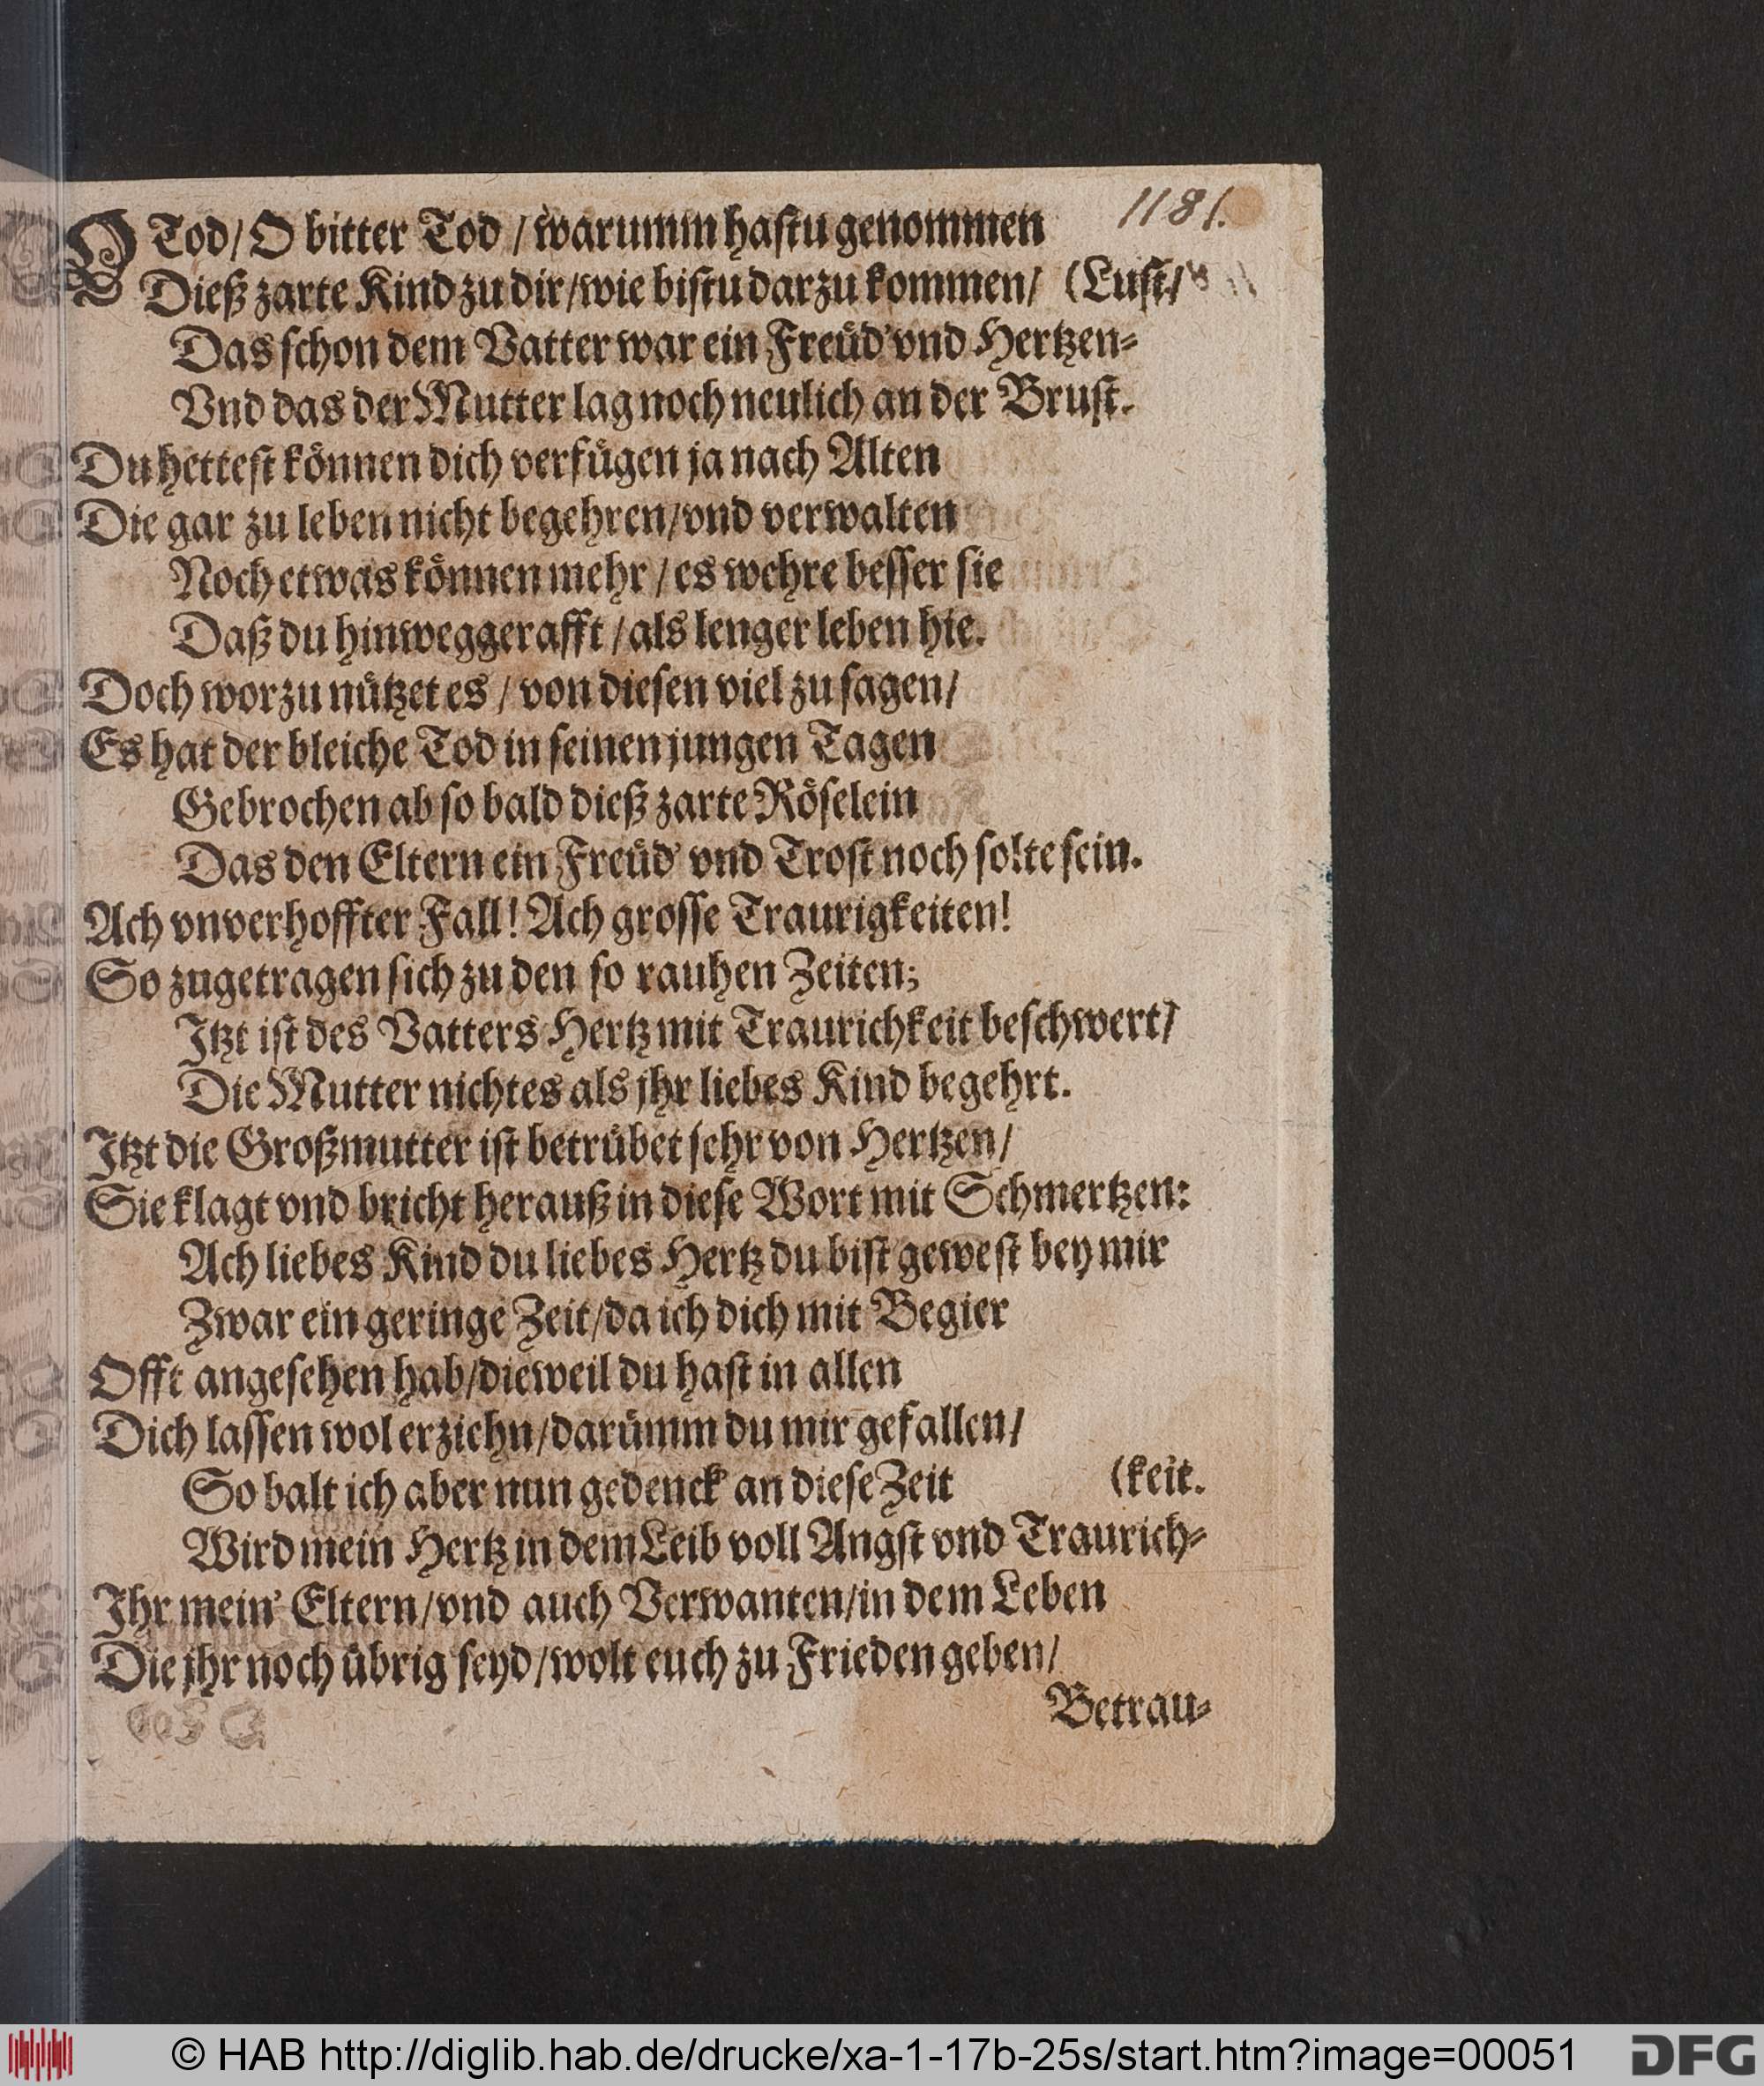 1181.
O Tod/ O bitter Tod / warumm hastu genommen
Dieß zarte Kind zu dir/wie bistu darzu kommen/ (Lust/
Das schon dem Vatter war ein Freůd' vnd Hertzen-
Vnd das der Mutter lag noch neulich an der Brust.
Du hettest kőnnen dich verfůgen ja nach Alten
Die gar zu leben nicht begehren/vnd verwalten
Noch etwas kőnnen mehr / es wehre besser sie
Daß du hinweggerafft / als lenger leben hie.
Doch worzu nůtzet es / von diesen viel zu sagen/
Es hat der bleiche Tod in seinen jungen Tagen
Gebrochen ab so bald dieß zarte Rőselein
Das den Eltern ein Freůd' vnd Trost noch solte sein.
Ach vnverhoffter Fall! Ach grosse Traurigkeiten!
So zugetragen sich zu den so rauhen Zeiten;
Itzt ist des Vatters Hertz mit Traurichkeit beschwert/
Die Mutter nichtes als jhr liebes Kind begehrt.
Itzt die Großmutter ist betrůbet sehr von Hertzen/
Sie klagt vnd bricht herauß in diese Wort mit Schmertzen:
Ach liebes Kind du liebes Hertz du bist gewest bey mir
Zwar ein geringe Zeit/da ich dich mit Begier
Offt angesehen hab/dieweil du hast in allen
Dich lassen wol erziehn/darůmm du mir gefallen/
So balt ich aber nun gedenck' an diese Zeit (keit.
Wird mein Hertz in dem Leib voll Angst vnd Traurich-
Ihr mein' Eltern/vnd auch Verwanten/in dem Leben
Die jhr noch ůbrig seyd/wolt euch zu Frieden geben/
Betrau-
© HAB http://diglib.hab.de/drucke/xa-1-17b-25s/start.htm?image=00051
DFG